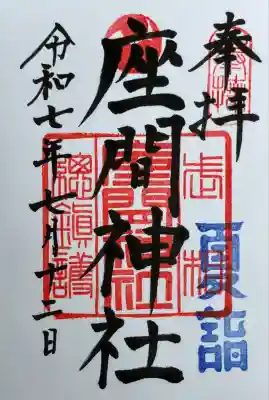 奉拝
夏詣
座間神社
総鎮護
令和七年七月十二日